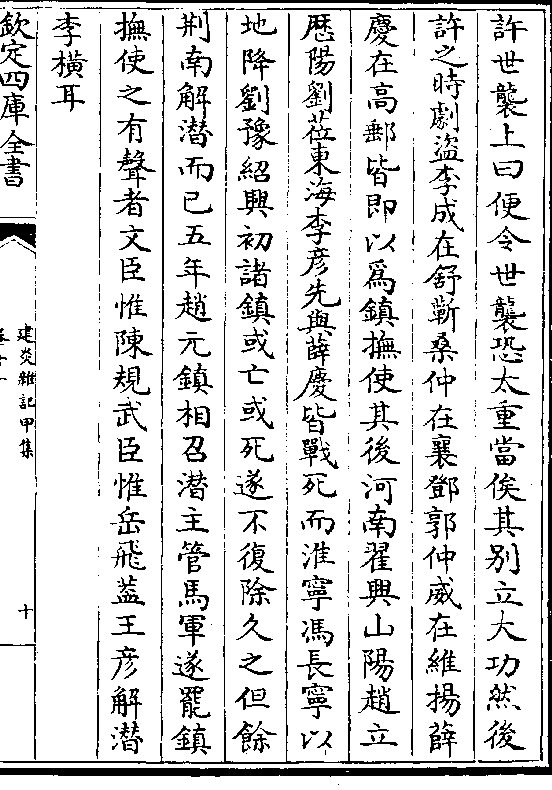 許世襲上曰便令世襲恐太重當俟其别立大功然後
許之時劇盜李成在舒蘄桑仲在襄鄧郭仲威在維揚薛
慶在高郵皆即以爲鎮撫使其後河南翟興山陽趙立
歴陽劉蒞東海李彦先與薛慶皆戰死而淮寧馮長寧以
地降劉豫紹興初諸鎮或亡或死遂不復除久之但餘
荆南解潛而已五年趙元鎮相召潛主管馬軍遂罷鎮
撫使之有聲者文臣惟陳規武臣惟岳飛葢王彦解潛
李橫耳
欽定四庫全書
建炎雜記甲集
卷十一
十